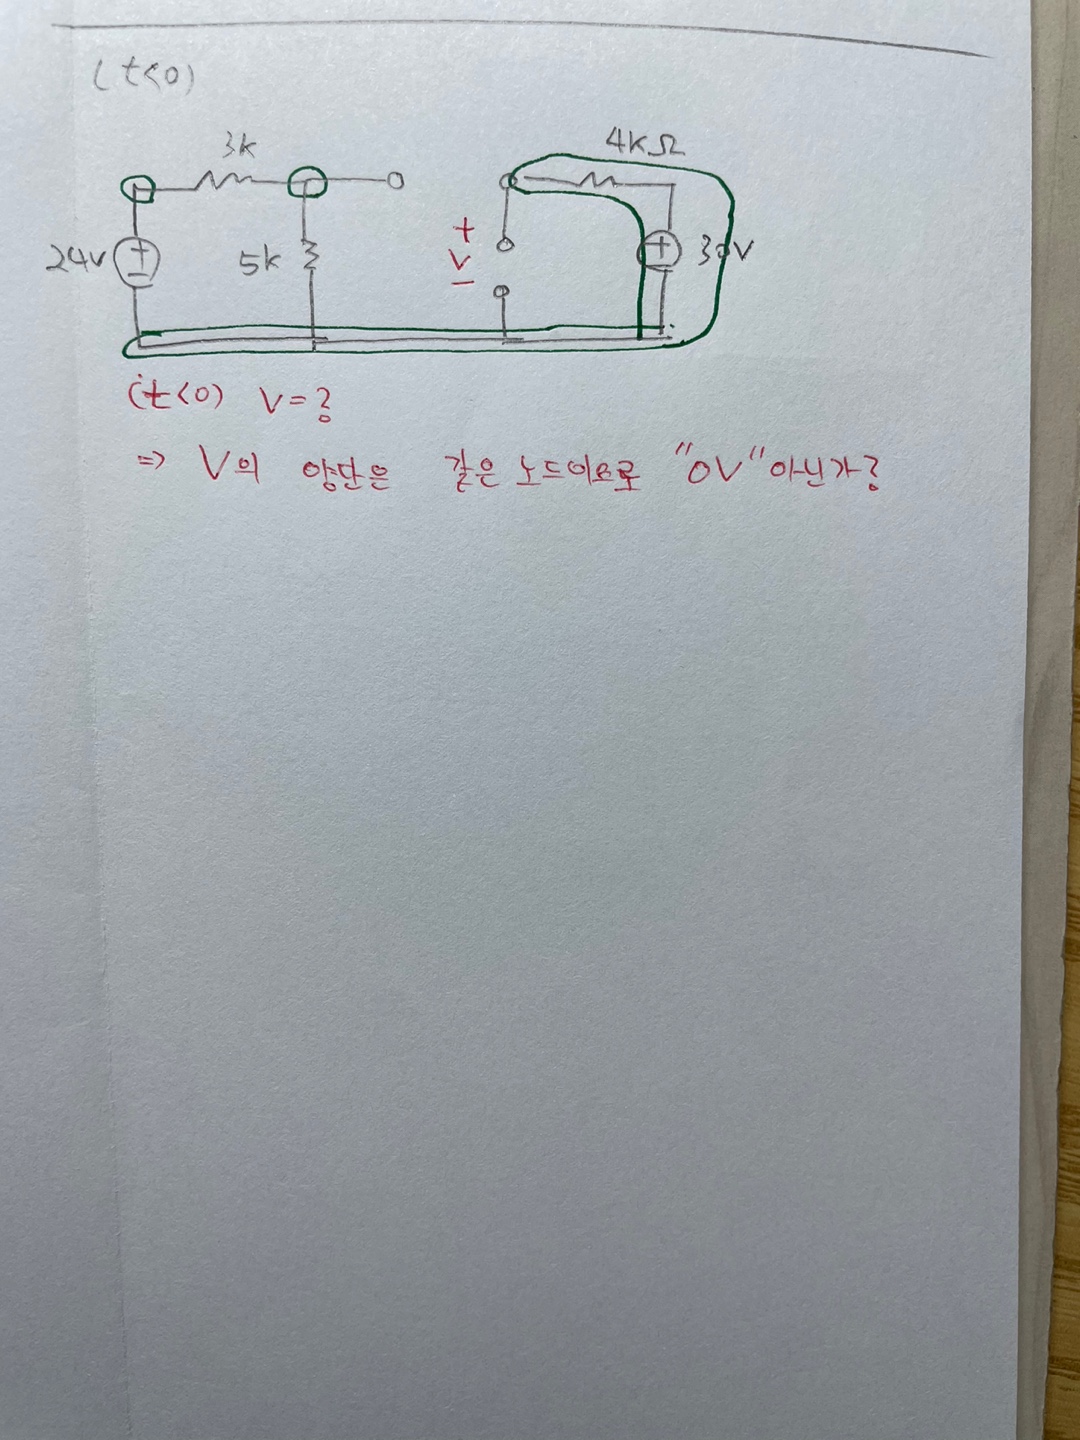 (t<0)
3k
4kΩ
24V
5k
+
V
-
30V
(t<0) V=?
⇒ V의 양단은 같은 노드이므로 "0V"아닌가?